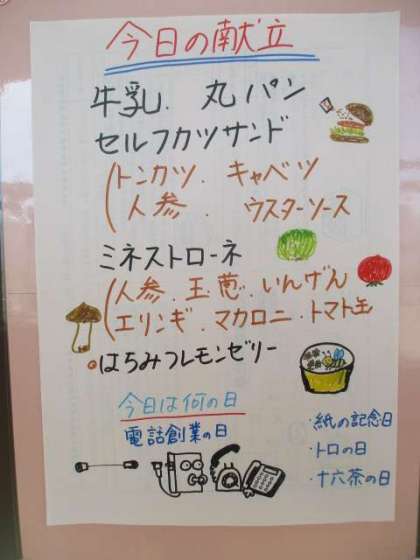 今日の献立
牛乳. 丸パン
セルフカツサンド
(トンカツ. キャベツ
人参. ウスターソース
ミネストローネ
(人参.玉葱.いんげん
エリンギ.マカロニ.トマト缶
はちみつレモンゼリー
今日は何の日
電話創業の日
・紙の記念日
・トロの日
・十六茶の日